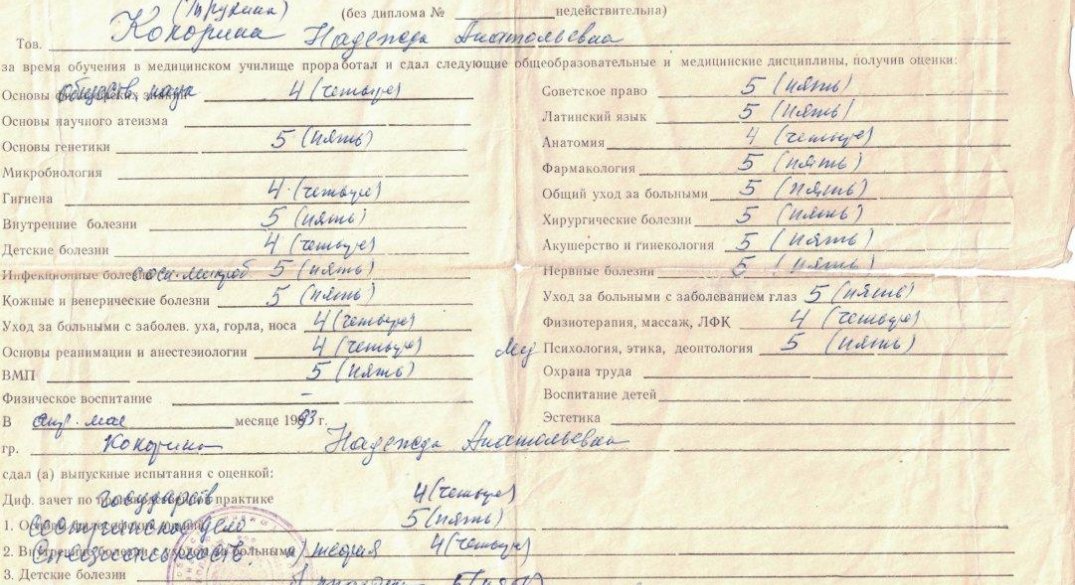 (Трухина) (без диплома № недействительна)
Тов. Кокорина Надежда Анатольевна
за время обучения в медицинском училище проработал и сдал следующие общеобразовательные и медицинские дисциплины, получив оценки:
Основы обществ. наук 4 (четыре)
Основы научного атеизма
Основы генетики 5 (пять)
Микробиология
Гигиена 4 (четыре)
Внутренние болезни 5 (пять)
Детские болезни 4 (четыре)
Инфекционные болезни 5 (пять)
Кожные и венерические болезни 5 (пять)
Уход за больными с заболев. уха, горла, носа 4 (четыре)
Основы реанимации и анестезиологии 4 (четыре)
ВМП 5 (пять)
Физическое воспитание –
Советское право 5 (пять)
Латинский язык 5 (пять)
Анатомия 4 (четыре)
Фармакология 5 (пять)
Общий уход за больными 5 (пять)
Хирургические болезни 5 (пять)
Акушерство и гинекология 5 (пять)
Нервные болезни 5 (пять)
Уход за больными с заболеванием глаз 5 (пять)
Физиотерапия, массаж, ЛФК 4 (четыре)
Мед Психология, этика, деонтология 5 (пять)
Охрана труда
Воспитание детей
Эстетика
В апр. мае месяце 1993 г.
гр. Кокорина Надежда Анатольевна
сдал (а) выпускные испытания с оценкой:
Диф. зачет по государств практике 4 (четыре)
1. Сестринское дело 5 (пять)
2. Специальность. а) теория 4 (четыре)
3. Детские болезни 5 (пять)